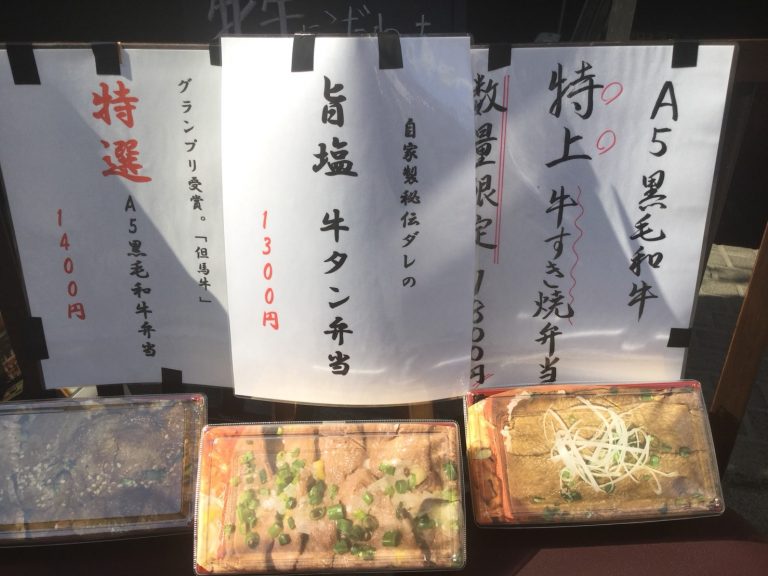 A5黒毛和牛
特上 牛すき焼弁当
数量限定
自家製秘伝ダレの
旨塩 牛タン弁当
1300円
グランプリ受賞。「但馬牛」
特選 A5黒毛和牛弁当
1400円